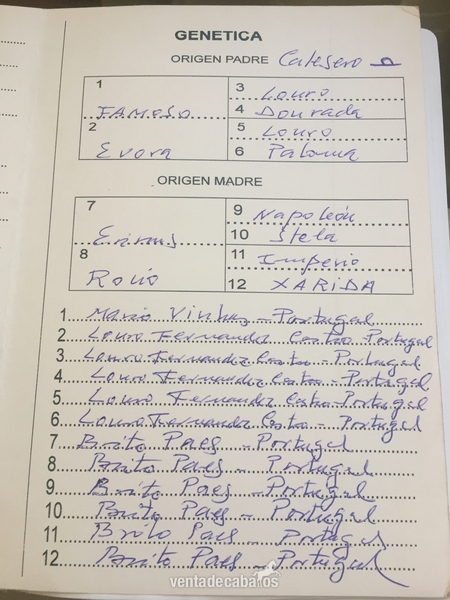 GENETICA
ORIGEN PADRE Calesero
1 FAMOSO
2 Evora
3 Louro
4 Dourada
5 Louro
6 Paloma
ORIGEN MADRE
7
8 Rocío
9 Napoleón
10 Stela
11 Imperio
12 XARIDA
1 Mario Vinhas - Portugal
2 Louro Fernandez Costas - Portugal
3 Louro Fernandez Costa - Portugal
4 Louro Fernandez Costa - Portugal
5 Louro Fernandez Costa - Portugal
6 Louro Fernandez Costa - Portugal
7 Brito Paes - Portugal
8 Brito Paes - Portugal
9 Brito Paes - Portugal
10 Brito Paes - Portugal
11 Brito Paes - Portugal
12 Brito Paes - Portugal
ventadecaballos